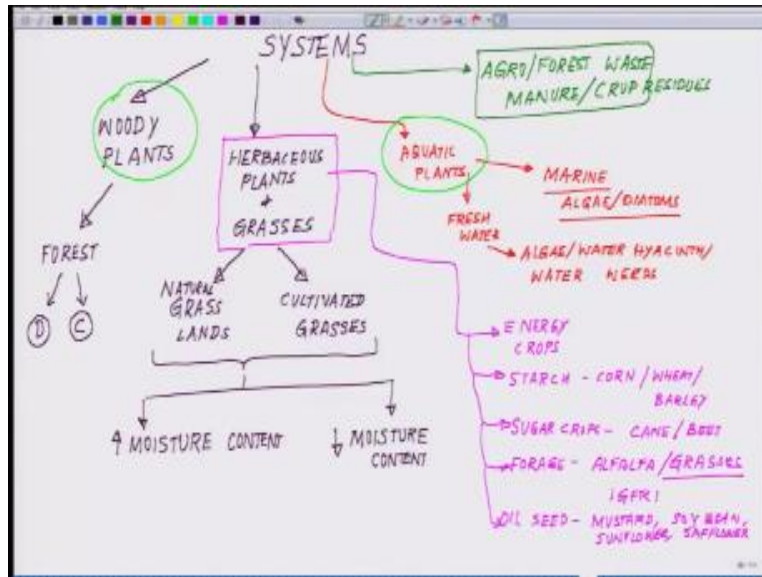 SYSTEMS
AGRO/FOREST WASTE
MANURE/CRUP RESIDUES
WOODY
PLANTS
HERBACEOUS
PLANTS
+
GRASSES
AQUATIC
PLANTS
MARINE
ALGAE/DIATOMS
FRESH
WATER
ALGAE/WATER HYACINTH/
WATER WERDS
FOREST
D C
NATURAL
GRASS
LANDS
CULTIVATED
GRASSES
↑ MOISTURE CONTENT
↓ MOISTURE
CONTENT
ENERGY
CROPS
STARCH - CORN / WHEAT /
BARLEY
SUGAR CROPS - CANE / BEET
FORAGE - ALFALFA / GRASSES
OIL SEED - MUSTARD, SOYBEAN,
SUNFLOWER, SAFFLOWER